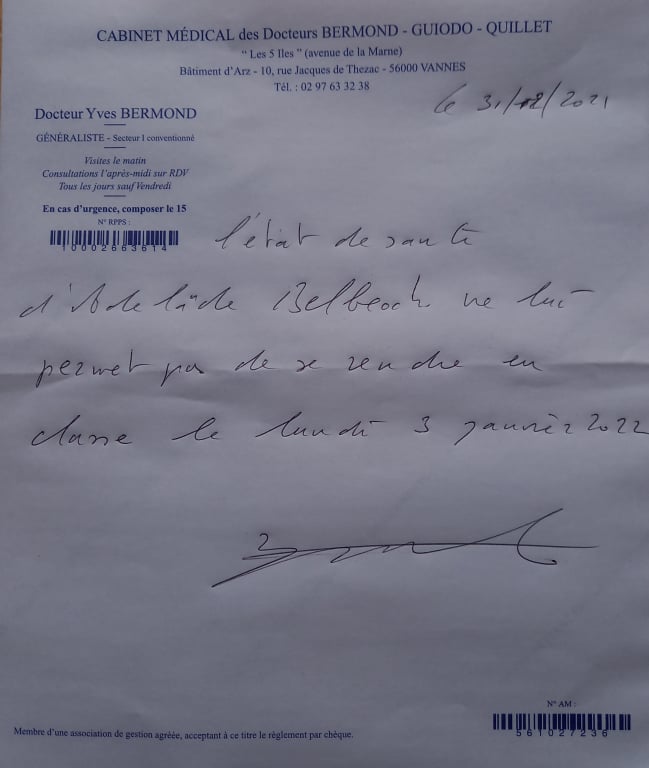 CABINET MÉDICAL des Docteurs BERMOND - GUIODO - QUILLET
“ Les 5 Iles ” (avenue de la Marne)
Bâtiment d'Arz - 10, rue Jacques de Thezac - 56000 VANNES
Tél. : 02 97 63 32 38
le 31/12/2021
Docteur Yves BERMOND
GÉNÉRALISTE - Secteur I conventionné
Visites le matin
Consultations l'après-midi sur RDV
Tous les jours sauf Vendredi
En cas d'urgence, composer le 15
N° RPPS :
10002663614
l'état de santé
d'Adelaïde Belbeoch ne lui
permet pas de se rendre en
classe le lundi 3 janvier 2022
N° AM :
561027236
Membre d'une association de gestion agréée, acceptant à ce titre le règlement par chèque.